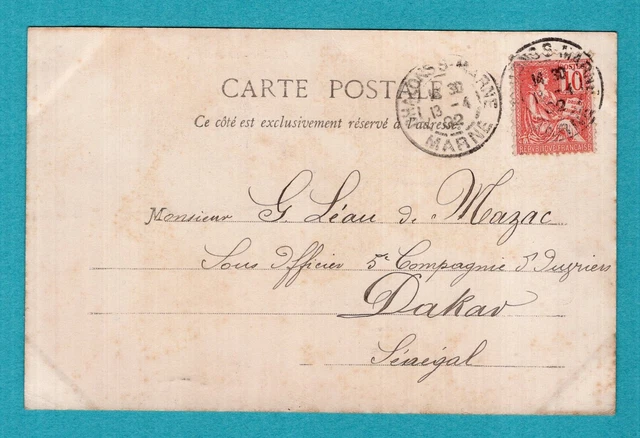 CARTE POSTALE
Ce côté est exclusivement réservé à l'adresse
CHALONS S-MARNE
13 -4
02
MARNE
10
Monsieur G. Léau de Mazac
Sous Officier 5e Compagnie d'Ouvriers
Dakar
Sénégal